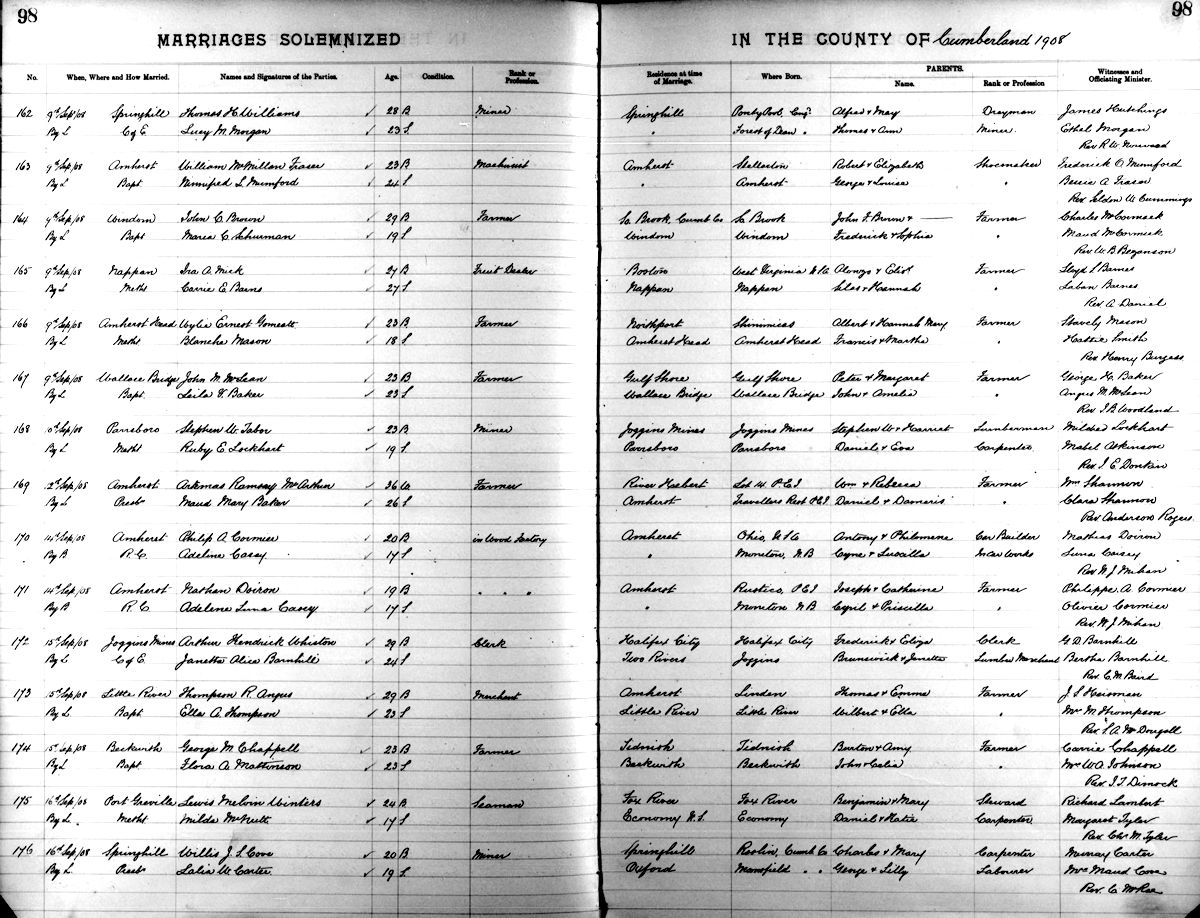 98 98
MARRIAGES SOLEMNIZED IN THE COUNTY OF Cumberland 1908
No. When, Where and How Married. Names and Signatures of the Parties. Age. Condition. Rank or Profession. Residence at time of Marriage. Where Born. PARENTS. Name. Rank or Profession Witnesses and Officiating Minister.
162 9th Sep/08 Springhill Thomas H. Williams 28 B Miner Springhill Eng. Alfred & Mary Drayman James Hutchings
By L C of E Lucy M. Morgan 23 S " Forest of Dean " Thomas & Ann Miner Ethel Morgan
Rev R W Norwood
163 9th Sep/08 Amherst William McMillan Fraser 23 B Machinist Amherst Stellarton Robert & Elizabeth Shoemaker Frederick O Mumford
By L Bapt Winnifred L Mumford 24 S " Amherst George & Louisa " Bessie A Fraser
Rev Seldon W Cummings
164 9th Sep/08 Windom John C Brown 29 B Farmer So Brook, Cumb Co So Brook John F Brown & — Farmer Charles McCormack
By L Bapt Maria C Schurman 19 S Windom Windom Frederick & Sophia " Maud McCormick
Rev W B Bezanson
165 9th Sep/08 Nappan Ira A. Mick 27 B Fruit Dealer Boston West Virginia U S A Alonzo & Elist Farmer Lloyd S Barnes
By L Meth Carrie E Barns 27 S Nappan Nappan Silas & Hannah " Laban Barnes
Rev A Daniel
166 9th Sep/08 Amherst Head Wylie Ernest 23 B Farmer Northport Shinimicas Albert & Hannah Mary Farmer Stavely Mason
By L Meth Blanche Mason 18 S Amherst Head Amherst Head Francis & Martha " Hattie Smith
Rev Henry Burgess
167 9th Sep/08 Wallace Bridge John M. McLean 23 B Farmer Gulf Shore Gulf Shore Peter & Margaret Farmer George H. Baker
By L Bapt Leila V Baker 23 S Wallace Bridge Wallace Bridge John & Amelia " Angus M. McLean
Rev J B Woodland
168 10th Sep/08 Parrsboro Stephen W Tabor 23 B Miner Joggins Mines Joggins Mines Stephen W & Harriet Lumberman Mildred Lockhart
By L Meth Ruby E Lockhart 19 S Parrsboro Parrsboro Daniel & Eva Carpenter Mabel Atkinson
Rev J E Donkin
169 12th Sep/08 Amherst Artemas Ramsay McArthur 36 W Farmer River Hebert Lot 14 P E I Wm & Rebecca Farmer Wm Shannon
By L Presb Maud Mary Baker 26 S Amherst Travellers Rest P E I Daniel & Damaris " Clara Shannon
Rev Anderson Rogers
170 14th Sep/08 Amherst Philip A. Cormier 20 B in Wood Factory Amherst Ohio, U S A Antony & Philomene Car Builder Mathias Doiron
By B R. C Adeline Casey 17 S " Moncton, N.B Cyrie & In Car Works Luna Casey
Rev W J Mihan
171 14th Sep/08 Amherst Nathan Doiron 19 B " " " Amherst Rustico, P E I Joseph & Catherine Farmer Philippe A Cormier
By B R. C Adelene Luna Casey 17 S " Moncton N B Cyril & Priscilla " Olivier Cormier
Rev. W J Mihan
172 15th Sep/08 Joggins Mines Arthur Hendrick Whiston 29 B Clerk Halifax City Halifax City Frederick & Eliza Clerk G D Barnhill
By L C of E Janetta Alice Barnhill 24 S Two Rivers Joggins Brunswick & Janetta Lumber Merchant Bertha Barnhill
Rev. C M Baird
173 15th Sep/08 Little River Thompson R. Angus 29 B Merchant Amherst Linden Thomas & Emma Farmer J S
By L Bapt Ella A Thompson 23 S Little River Little River Wilbert & Ella " Mr M Thompson
Rev. S. A. McDougall
174 15th Sep/08 Beckwith George M. Chappell 23 B Farmer Tidnish Tidnish Burton & Amy Farmer Carrie Chappell
By L Bapt Flora A Mattinson 23 S Beckwith Beckwith John & Celia " Mrs W A Johnson
Rev. J. T Dimock
175 16th Sep/08 Port Greville Lewis Melvin Winters 24 B Seaman Fox River Fox River Benjamin & Mary Steward Richard Lambert
By L. Meth Milda McNutt 17 S Economy N.S. Economy Daniel & Katie Carpenter Margaret Tyler
Rev Chs. M. Tyler
176 16th Sep/08 Springhill Willis J. S. Cove 20 B Miner Springhill Roslin, Cumb Co Charles & Mary Carpenter Murray Carter
By L. Presb Lalia W Carter 19 S Oxford Mansfield " " George & Lilly Labourer Mrs Maud Cove
Rev. C McRae